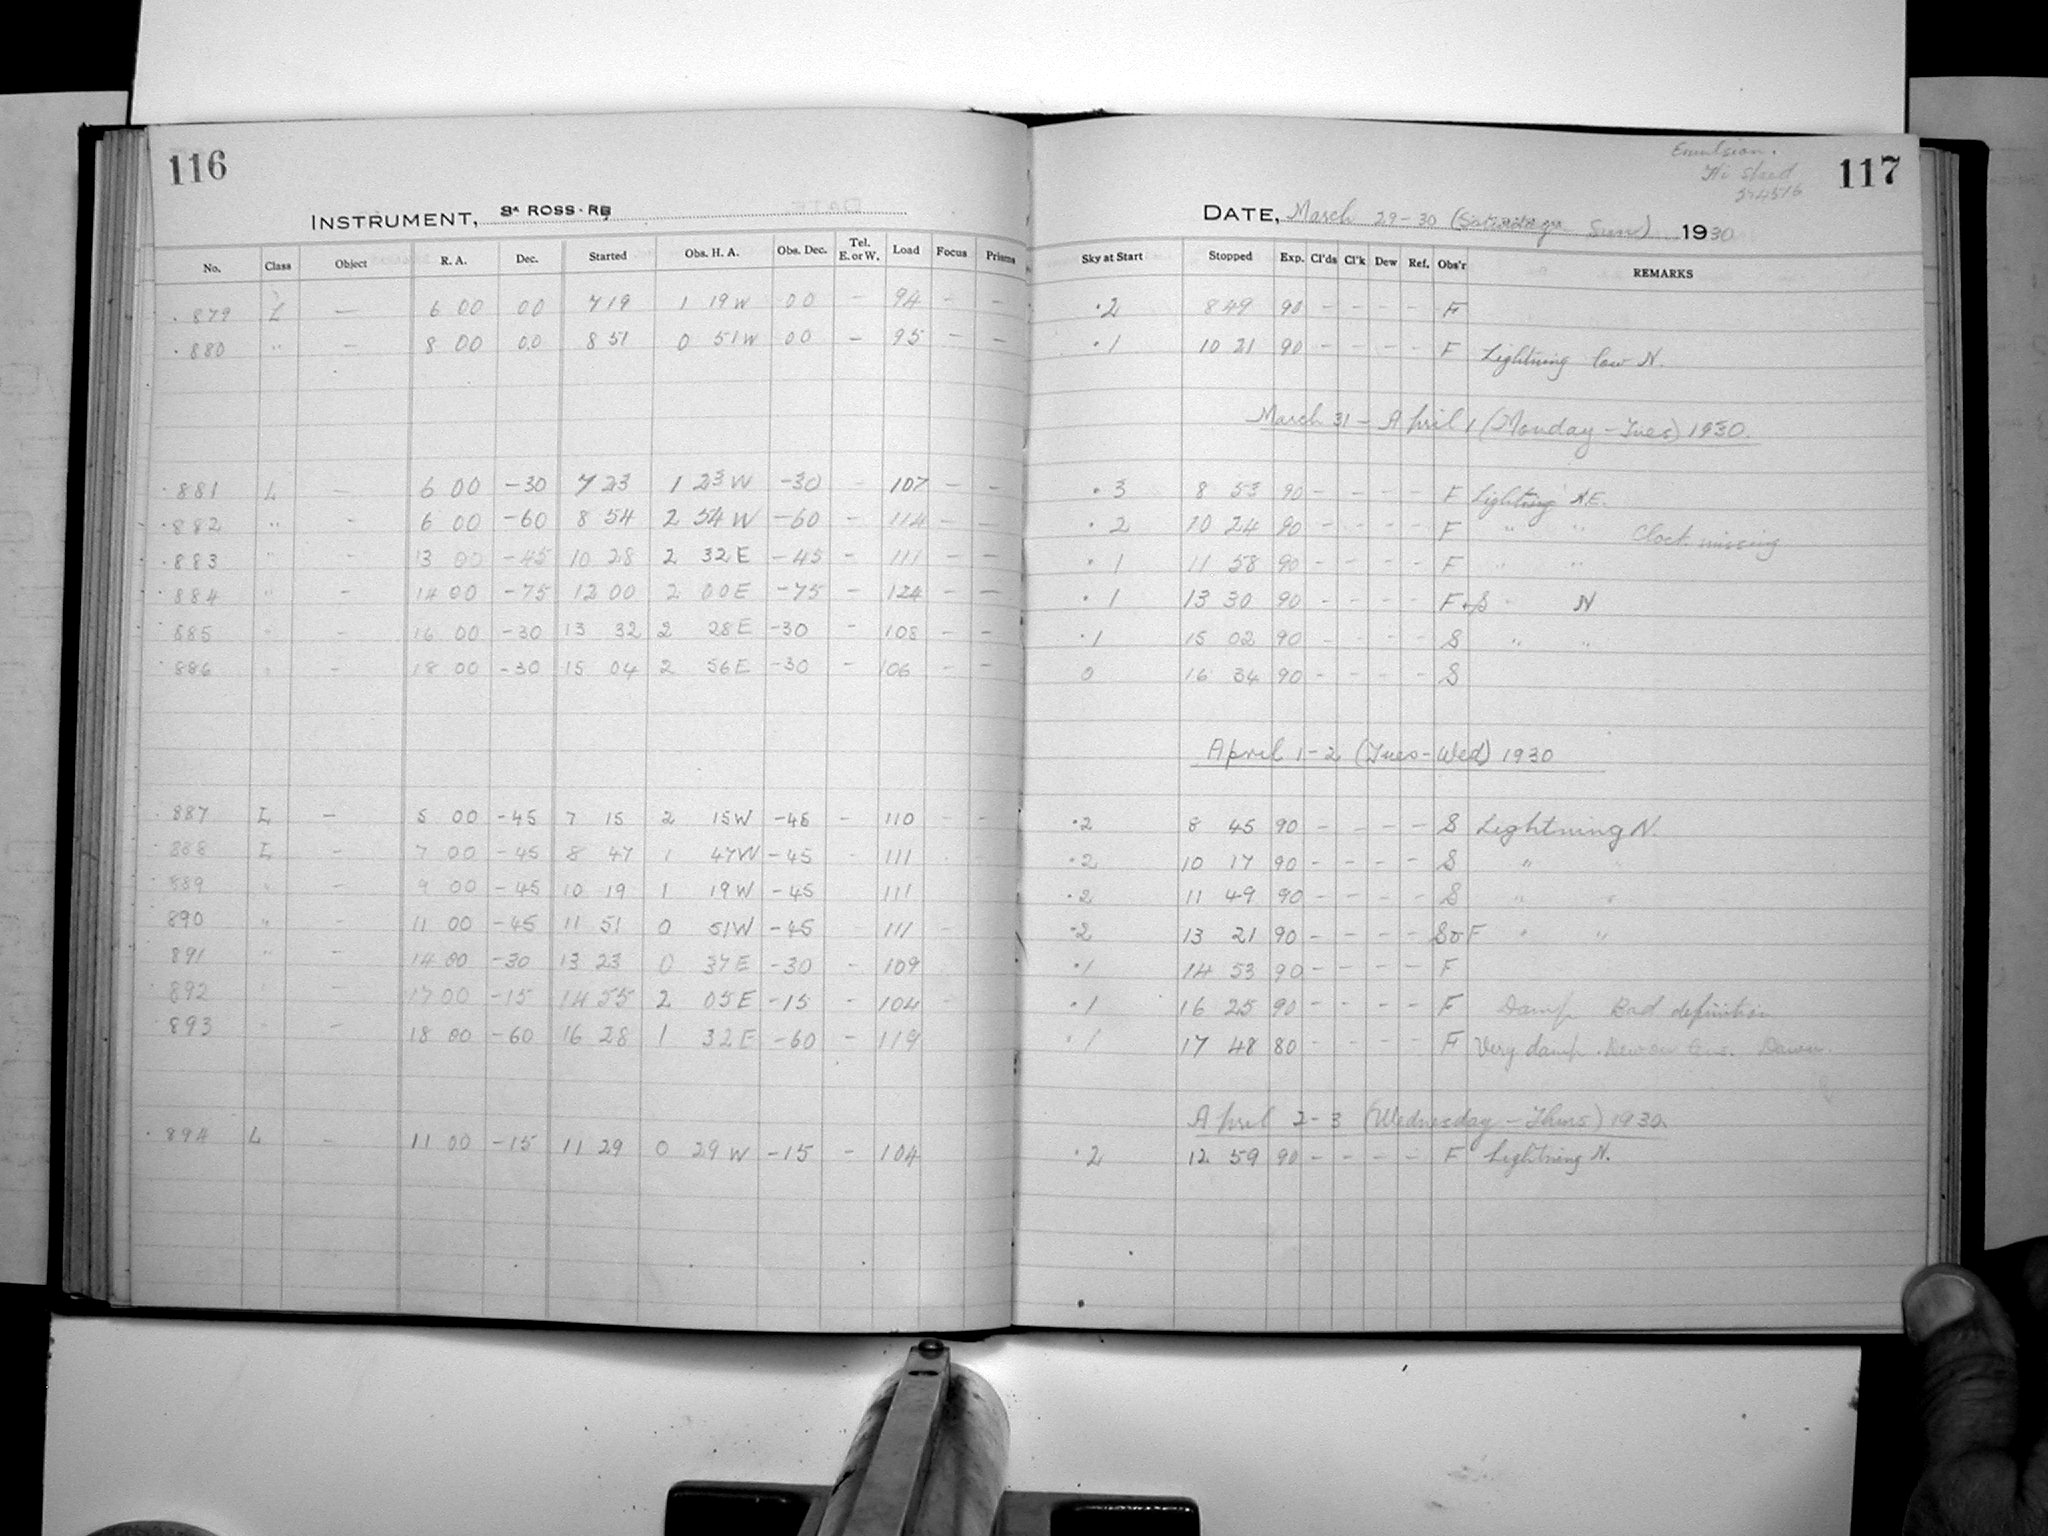 116
INSTRUMENT, 3ᴬ ROSS·RB
No. Class Object R. A. Dec. Started Obs. H. A. Obs. Dec. Tel. E. or W. Load Focus Prisms
879 L — 6 00 00 7 19 1 19 W 00 — 94 — —
880 " — 8 00 00 8 51 0 51 W 00 — 95 — —
881 L — 6 00 -30 7 23 1 23 W -30 — 107 — —
882 " — 6 00 -60 8 54 2 54 W -60 — 114 — —
883 " — 13 00 -45 10 28 2 32 E -45 — 111 — —
884 " — 14 00 -75 12 00 2 00 E -75 — 124 — —
885 " — 16 00 -30 13 32 2 28 E -30 — 108 — —
886 " — 18 00 -30 15 04 2 56 E -30 — 106 — —
887 L — 5 00 -45 7 15 2 15 W -45 — 110 — —
888 L — 7 00 -45 8 47 1 47 W -45 111
889 " — 9 00 -45 10 19 1 19 W -45 111
890 " — 11 00 -45 11 51 0 51 W -45 111
891 " — 14 00 -30 13 23 0 37 E -30 — 109
892 — 17 00 -15 14 55 2 05 E -15 — 104
893 — 18 00 -60 16 28 1 32 E -60 — 119
894 L — 11 00 -15 11 29 0 29 W -15 — 104
Emulsion.
117
DATE, March 29-30 (Saturday Sun) 1930
Sky at Start Stopped Exp. Cl'ds Cl'k Dew Ref. Obs'r REMARKS
·2 8 49 90 - - - - F
·1 10 21 90 - - - - F Lightning low N.
March 31 - April 1 (Monday - Tues) 1930.
·3 8 53 90 - - - - F Lightning N E.
·2 10 24 90 - - - - F " " Clock missing
·1 11 58 90 - - - - F " "
·1 13 30 90 - - - - F+S " N
·1 15 02 90 - - - - S " "
0 16 34 90 - - - - S
April 1-2 (Tues-Wed) 1930
·2 8 45 90 - - - - S Lightning N.
·2 10 17 90 - - - - S "
·2 11 49 90 - - - - S " "
·2 13 21 90 - - - - S&F " "
·1 14 53 90 - - - - F
·1 16 25 90 - - - - F Damp Bad definition
·1 17 48 80 - - - - F Very damp. Dew on Dawn.
April 2-3 (Wednesday - Thurs) 1930.
·2 12 59 90 - - - - F Lightning N.